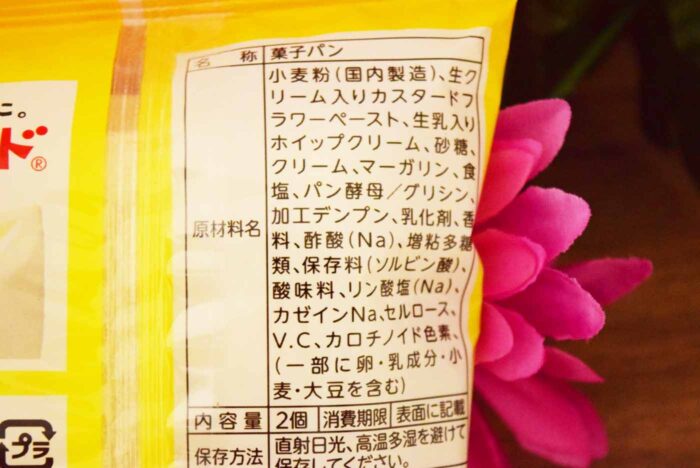 に。
ド®
名 称 菓子パン
原材料名
小麦粉(国内製造)、生ク
リーム入りカスタードフ
ラワーペースト、生乳入り
ホイップクリーム、砂糖、
クリーム、マーガリン、食
塩、パン酵母/グリシン、
加工デンプン、乳化剤、香
料、酢酸(Na)、増粘多糖
類、保存料(ソルビン酸)、
酸味料、リン酸塩(Na)、
カゼインNa、セルロース、
V.C、カロチノイド色素、
(一部に卵・乳成分・小
麦・大豆を含む)
内容量 2個 消費期限 表面に記載
保存方法 直射日光、高温多湿を避けて
保存してください。
プラ